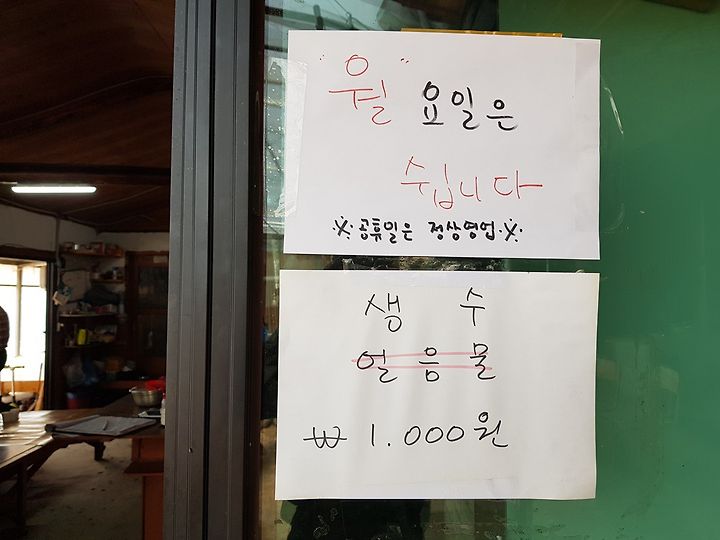 "월" 요일은
쉽니다
※공휴일은 정상영업※
생 수
얼 음 물
₩ 1.000원